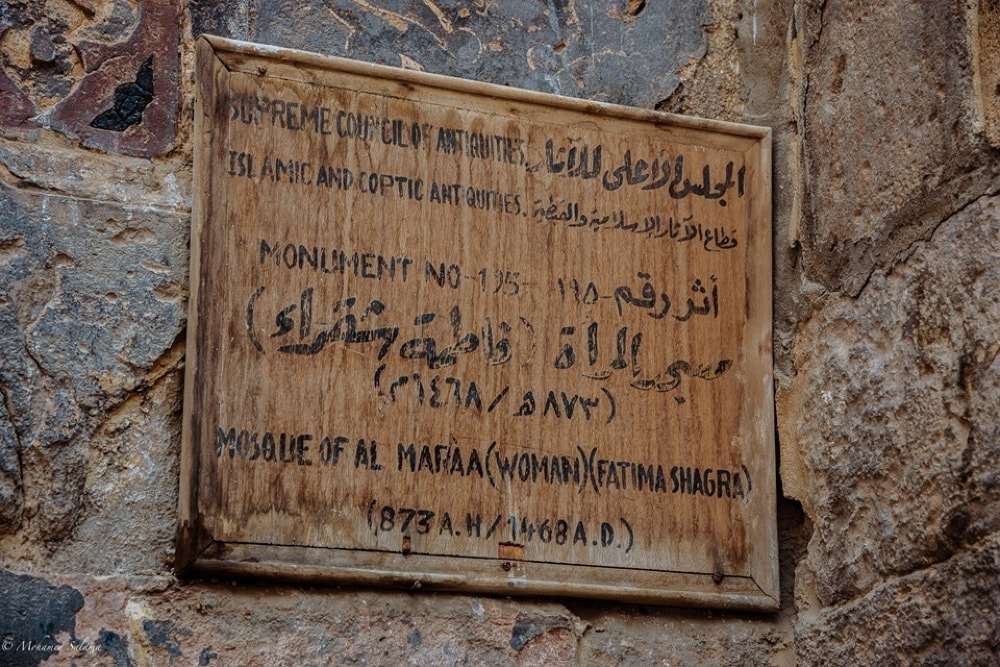 SUPREME COUNCIL OF ANTIQUITIES. المجلس الأعلى للآثار
ISLAMIC AND COPTIC ANTIQUITIES. قطاع الآثار الإسلامية والقبطية
MONUMENT NO-195- أثر رقم-١٩٥
مسجد المرأة (فاطمة شقراء)
(٨٧٣هـ/١٤٦٨م)
MOSQUE OF AL MAR'AA(WOMAN)(FATIMA SHAGRA)
(873A.H/1468A.D.)
© Mohamed Salama